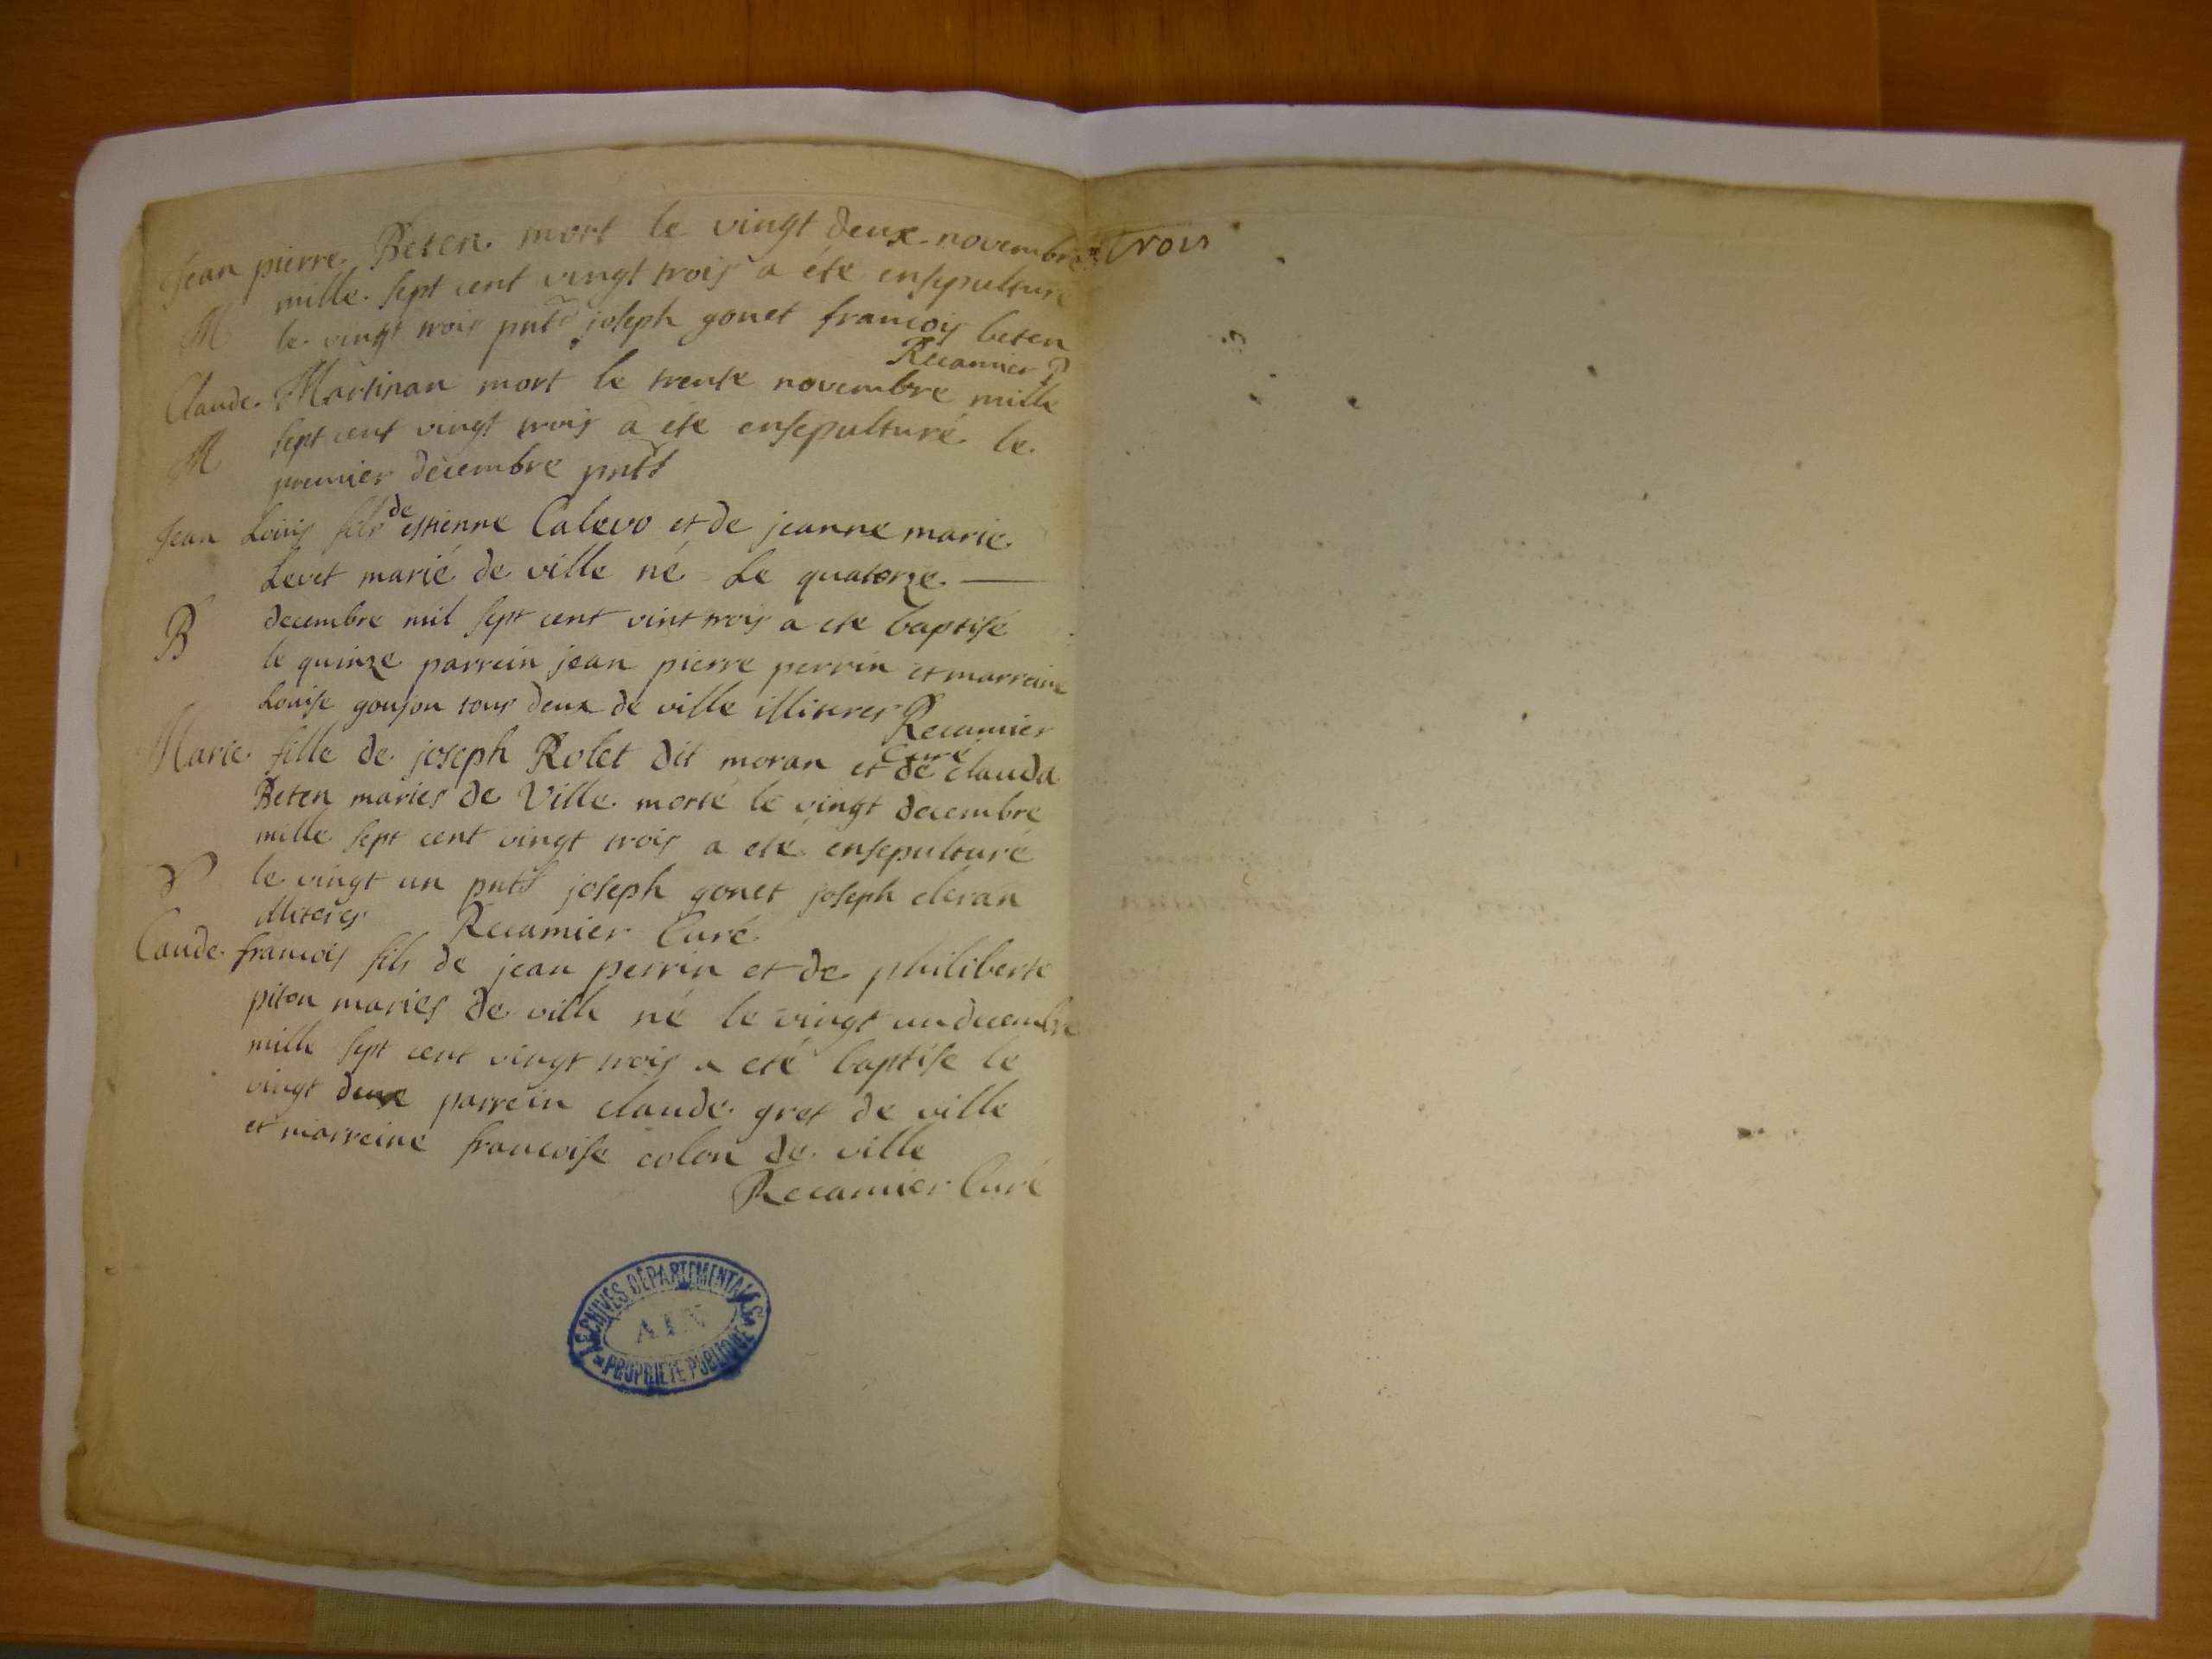 Jean pierre Beten mort le vingt deux novembre
mille sept cent vingt trois a été ensepulturé
M
le vingt trois pnts joseph gonet francois beten
Recamier
Claude Martinan mort le trente novembre mille
sept cent vingt trois a été ensepulturé le
M
premier decembre pnts
Jean Louis fils de estienne Calevo et de jeanne marie
Levet marié de ville né Le quatorze
decembre mil sept cent vint trois a ete baptisé
B
le quinze parrein jean pierre perrin et marreine
Louise goujon tous deux de ville illiteres Recamier
Curé
Marie fille de joseph Rolet dit moran et de clauda
Beten maries de Ville morte le vingt decembre
mille sept cent vingt trois a eté ensepulturé
le vingt un pnts joseph gonet joseph cleran
illiteres Recamier Curé
Claude francois fils de jean perrin et de philiberte
piton maries de ville né le vingt un decembre
mille sept cent vingt trois a eté baptise le
vingt deux parrein claude gret de ville
et marreine francoise colon de ville
Recamier Curé
ARCHIVES DÉPARTEMENTALES
AIN
PROPRIÉTÉ PUBLIQUE
Trois